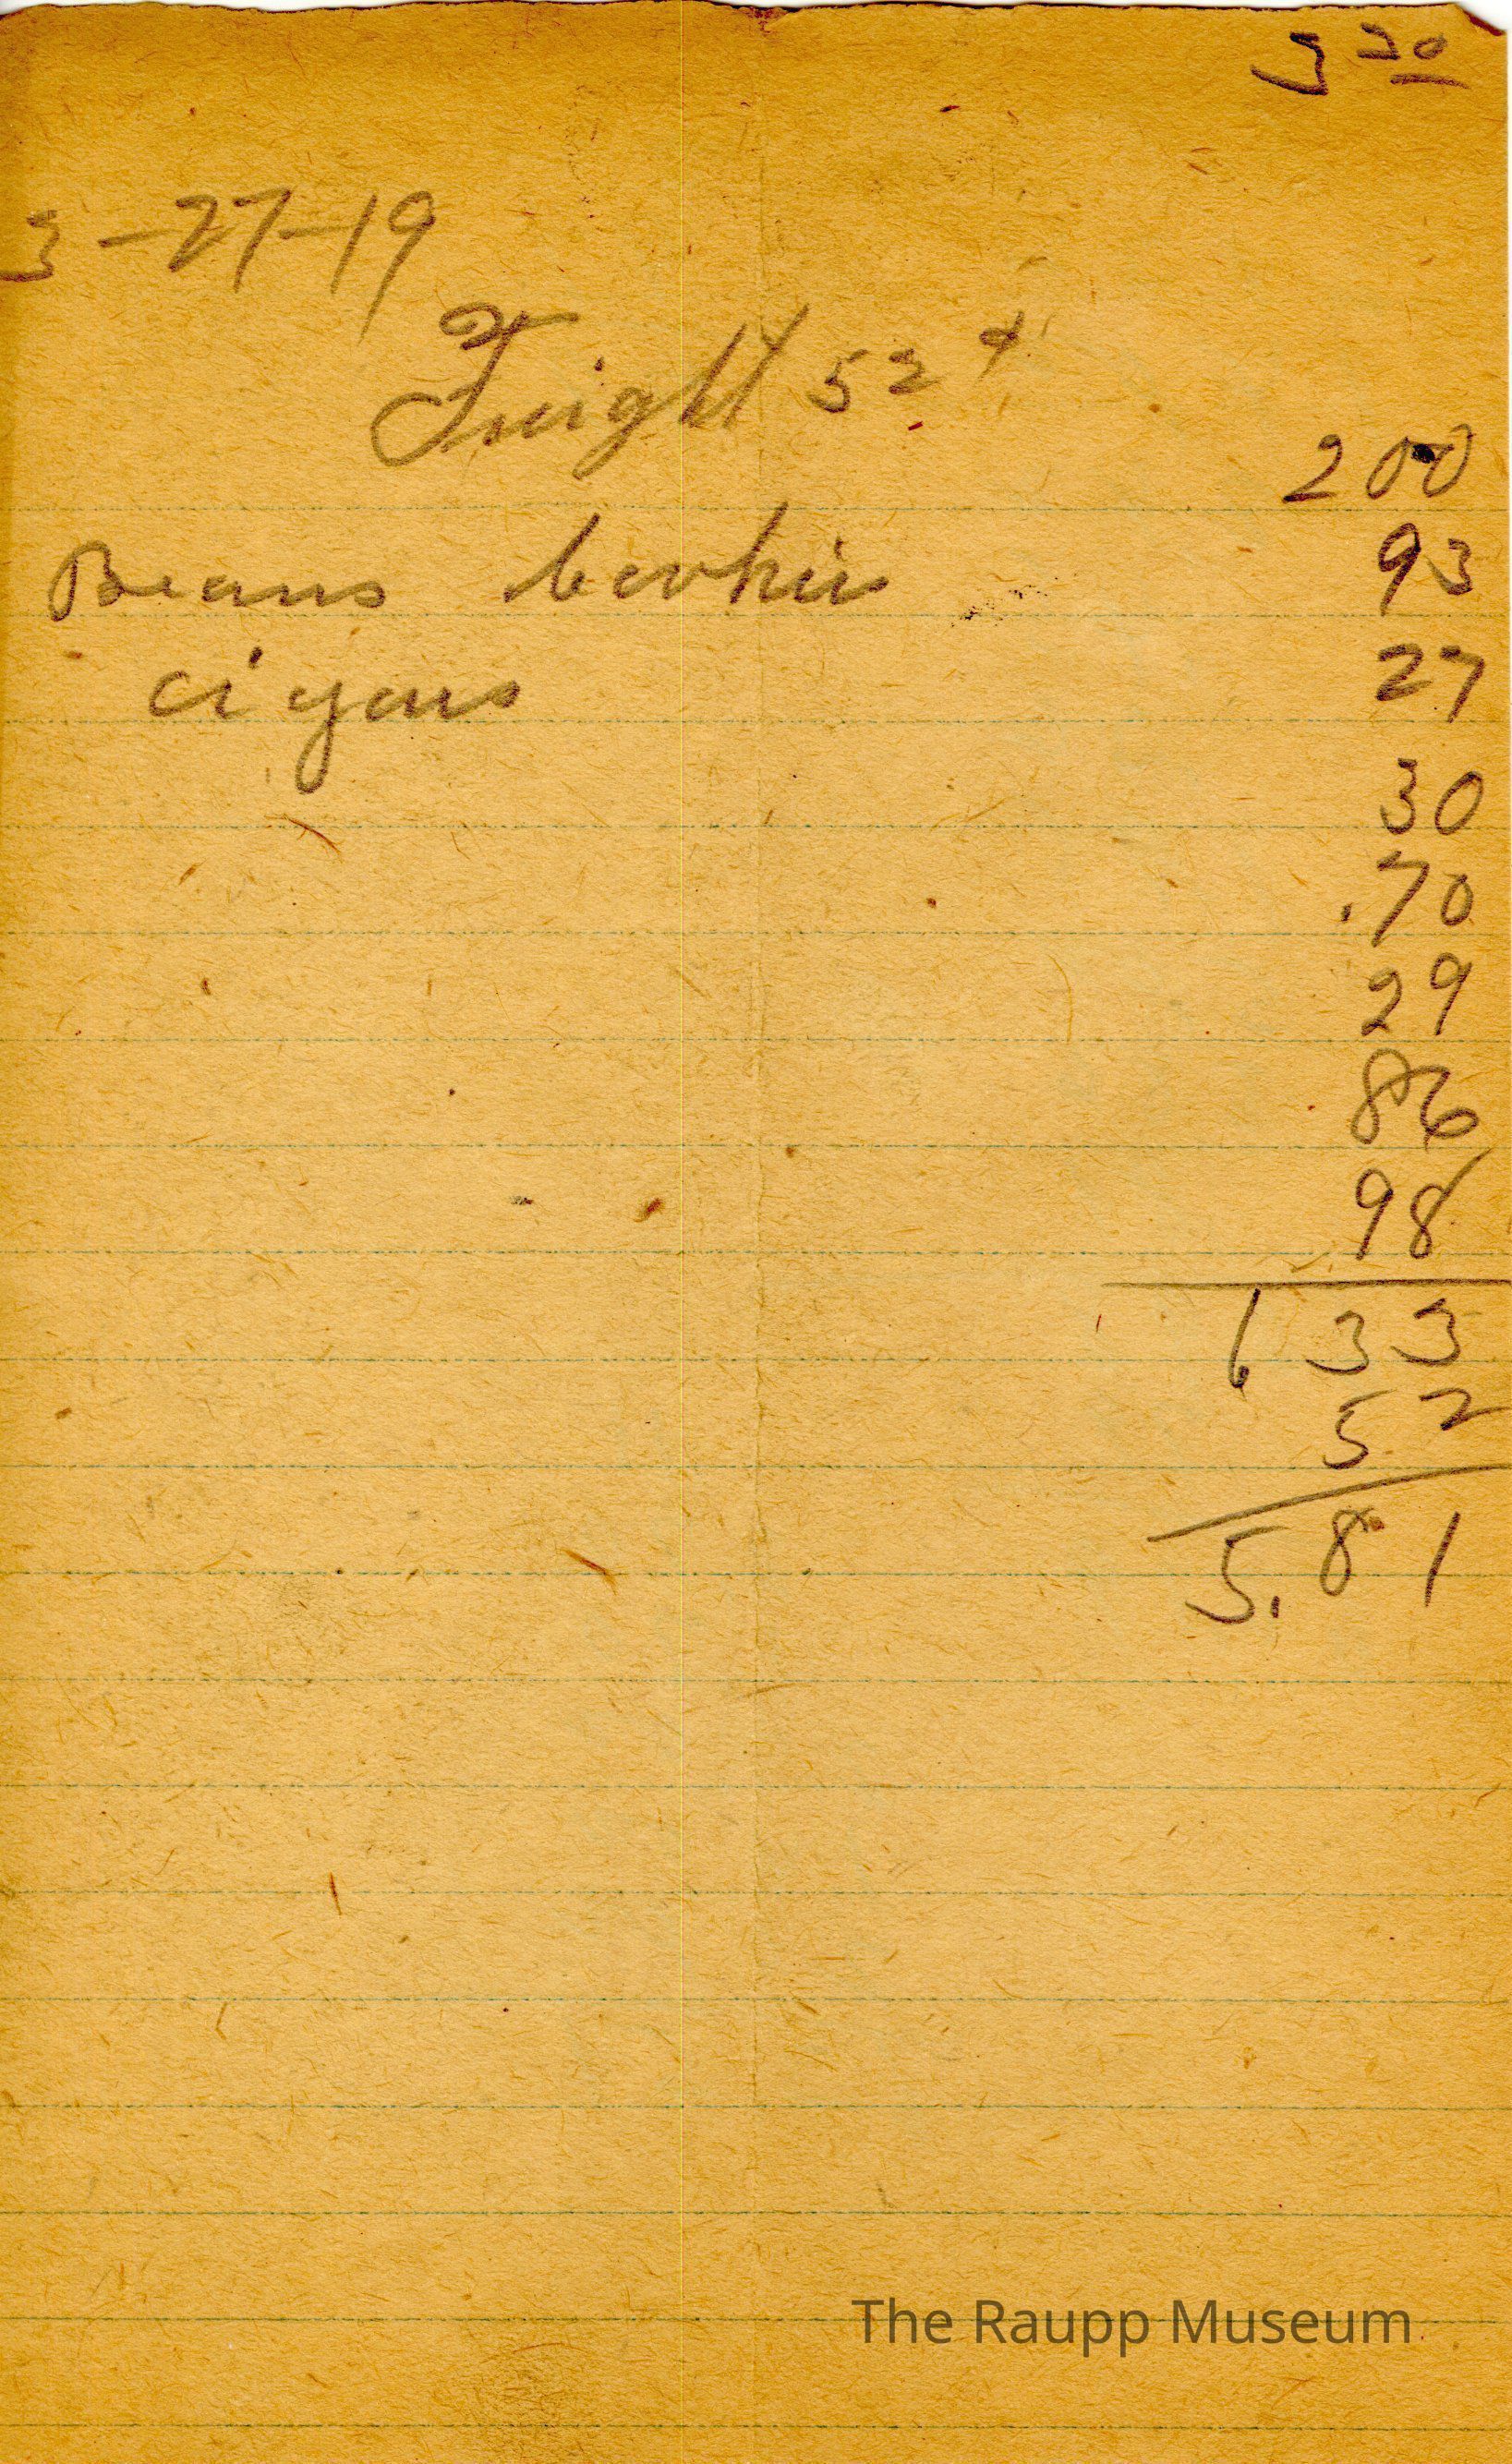 3 20
3-27-19
Freight 52 ¢
200
Beans 93
cigars 27
30
.70
29
86
98
6 33
52
5.81
The Raupp Museum